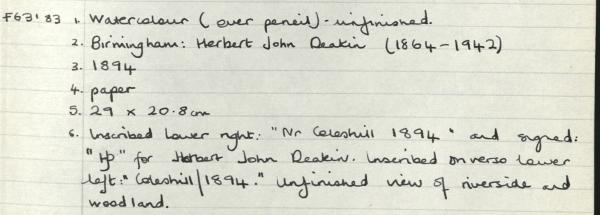 F63'83 1. Watercolour (over pencil) - unfinished.
2. Birmingham: Herbert John Deakin (1864-1942)
3. 1894
4. paper
5. 29 x 20.8cm
6. Inscribed lower right: "Nr Coleshill 1894" and signed:
"HJD" for Herbert John Deakin. Inscribed on verso lower
left: "Coleshill/1894." Unfinished view of riverside and
woodland.